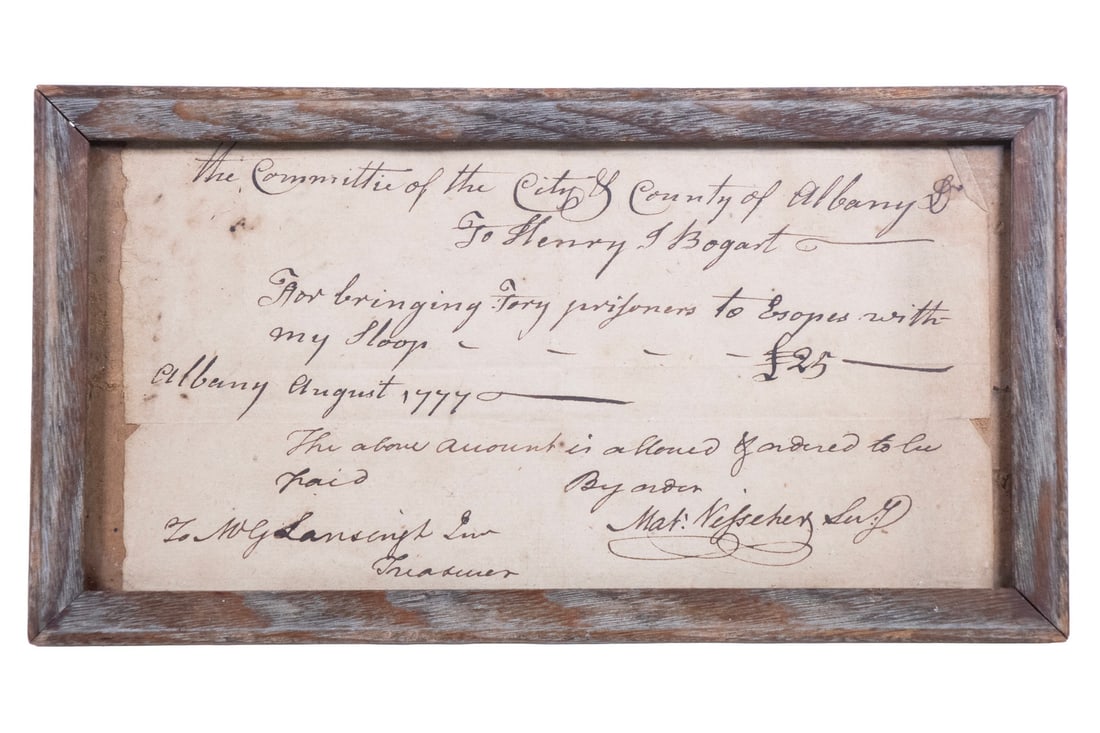 the Committie of the City & County of Albany Dr
To Henry I Bogart
For bringing Tory prisoners to Esopes with
my Sloop - - - - £25
Albany August 1777
The above account is allowed & ordered to be
paid By order
Mat: Visscher Secy
To Mr G Lansingh Jur
Treasurer